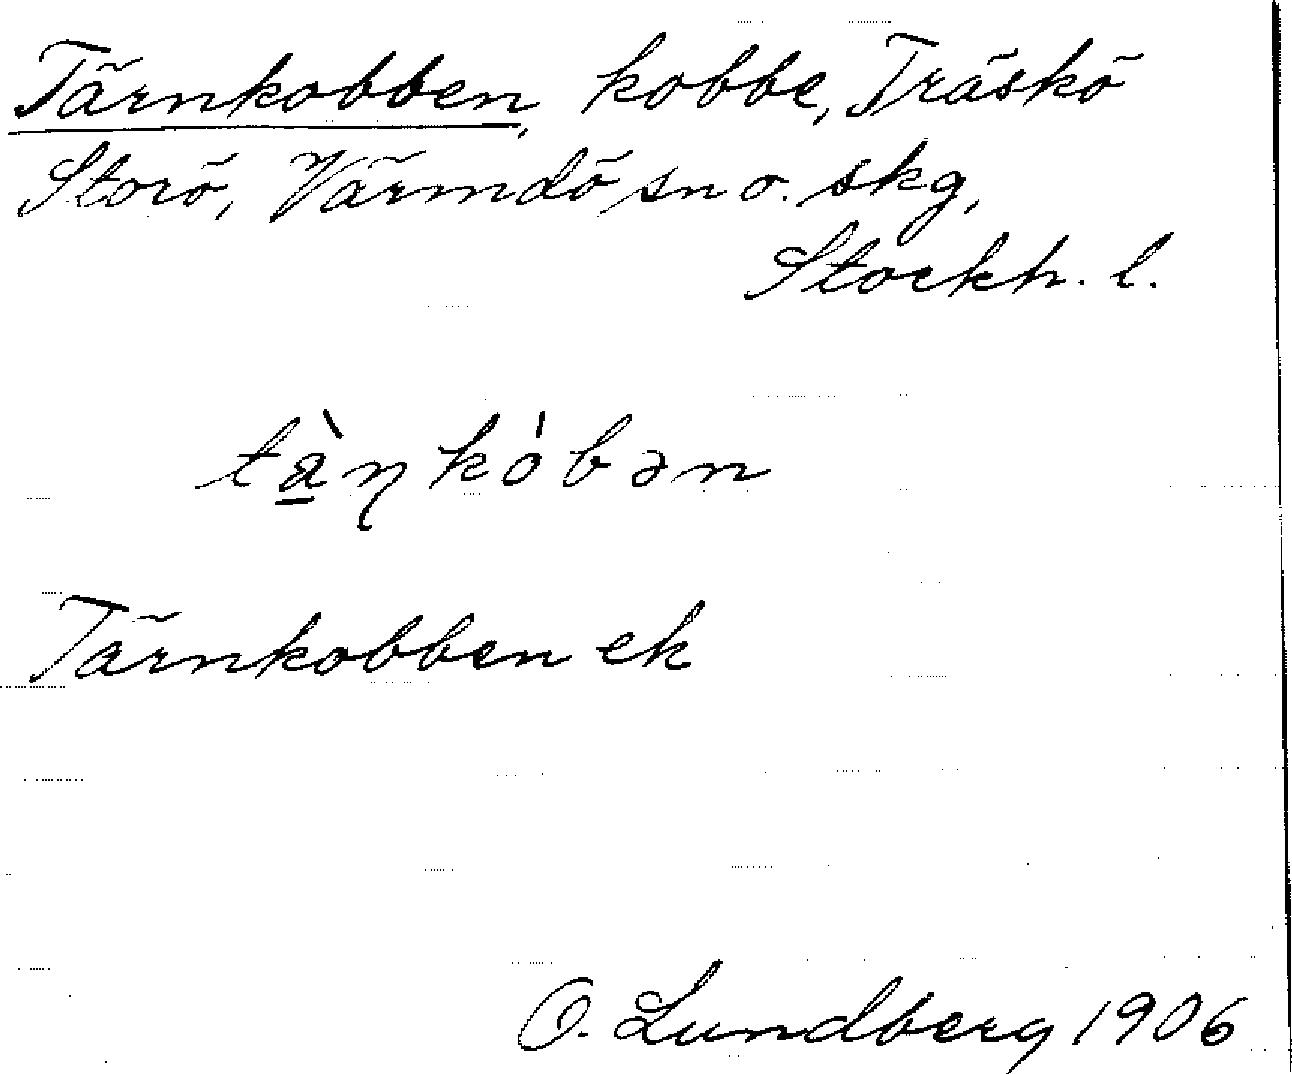 Tärnkobben, kobbe, Träskö
Storö, Värmdö sn o. skg,
Stockh. l.
tàṉkȯbən
Tärnkobben ek
O. Lundberg 1906